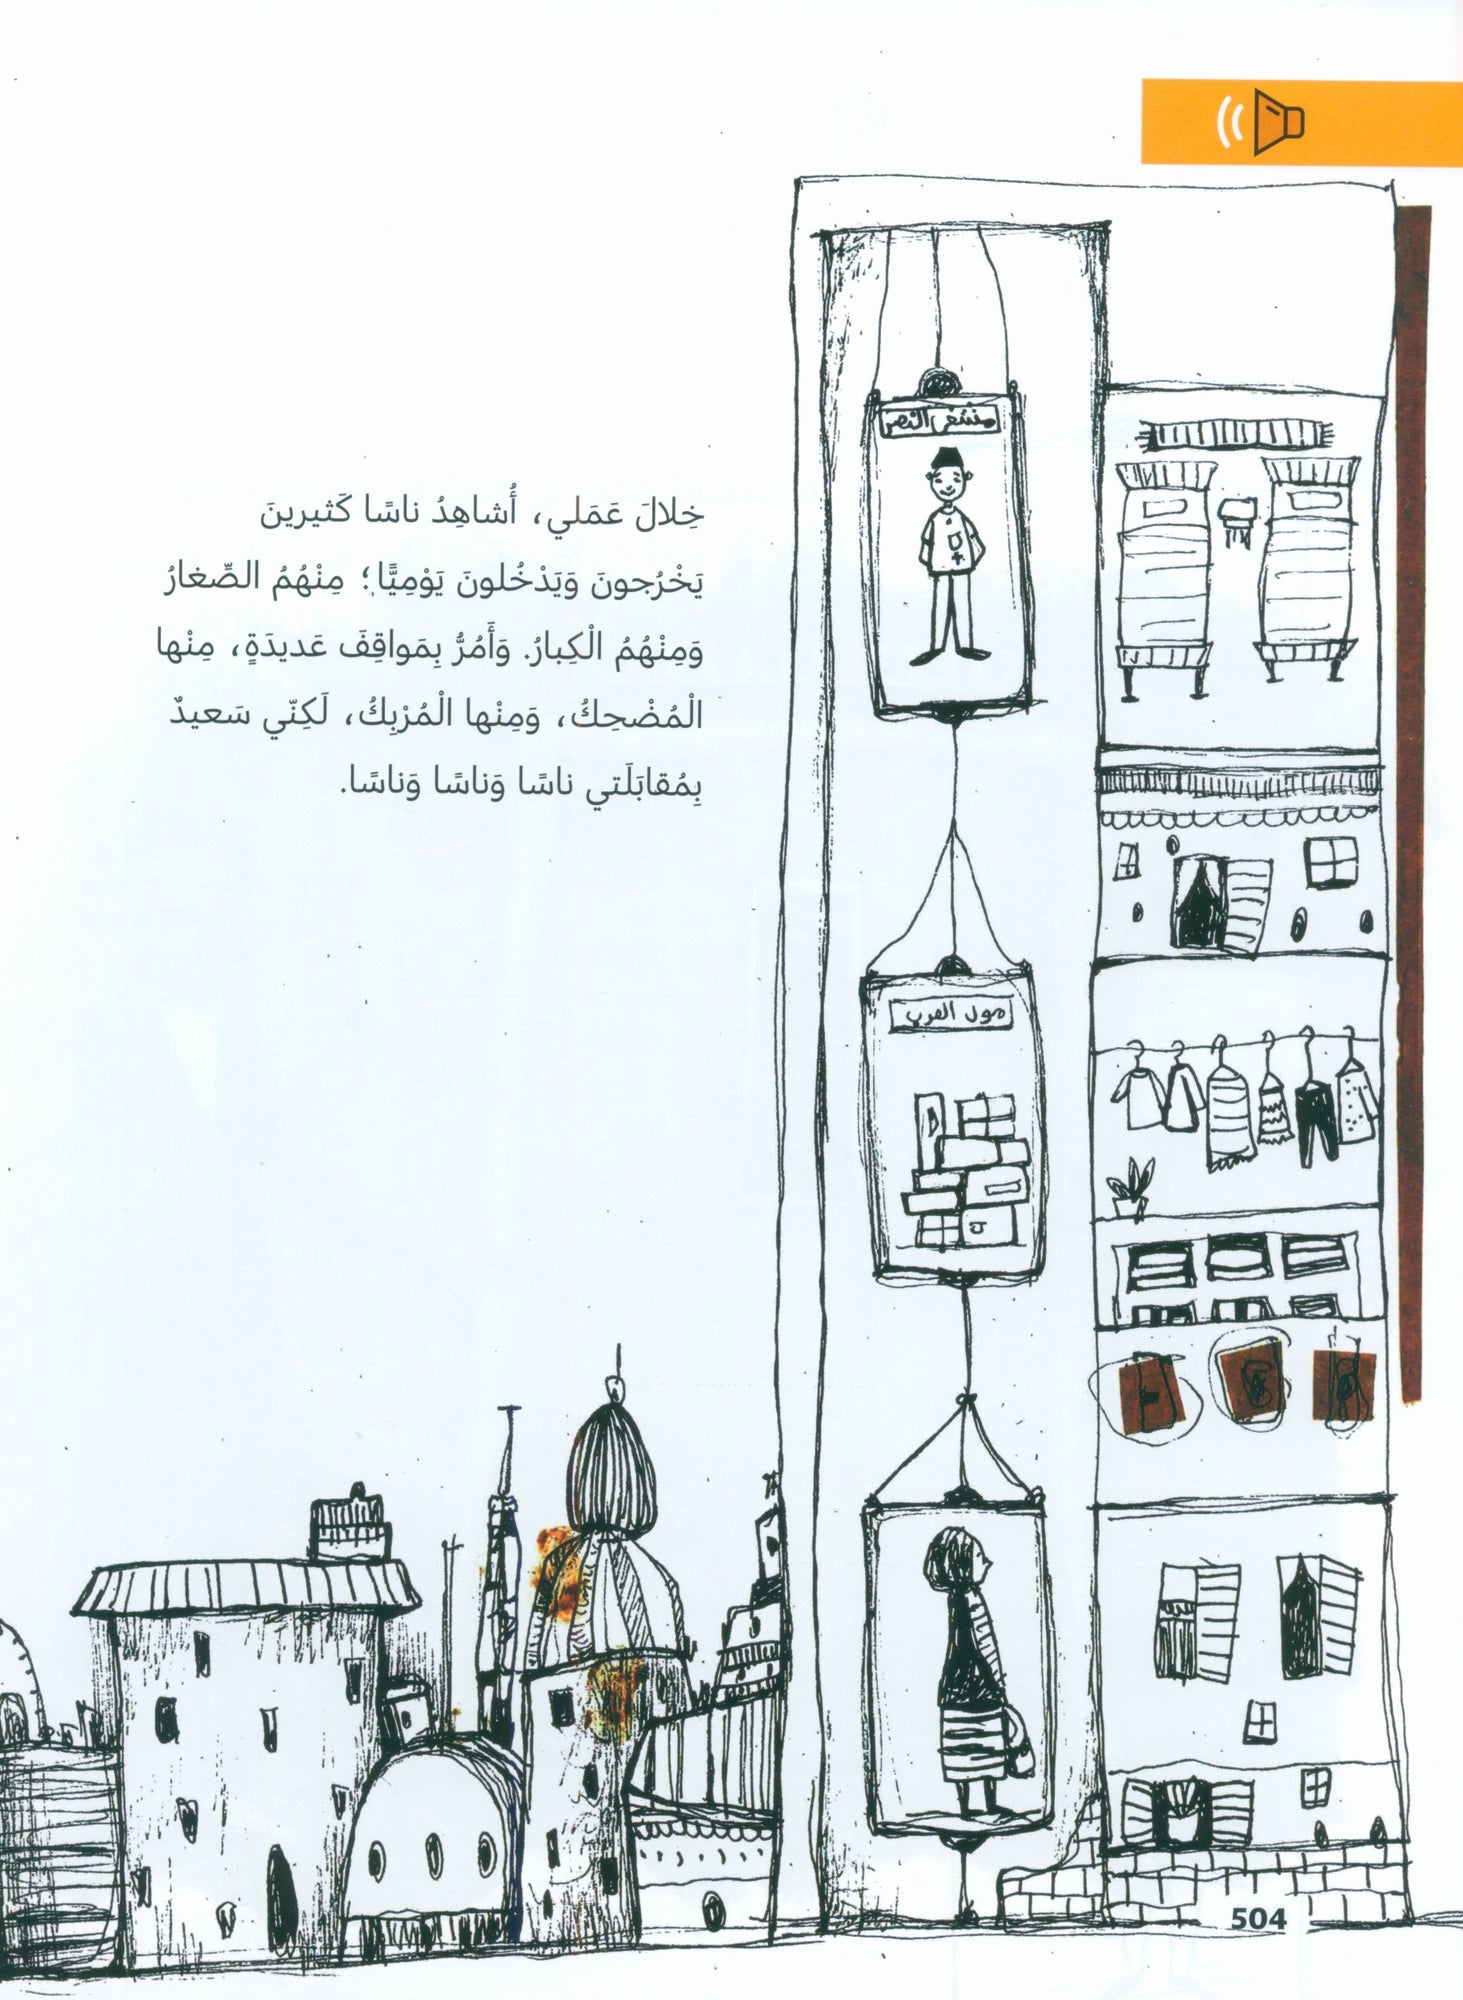 مستشفى النصر
خِلالَ عَمَلي، أُشاهِدُ ناسًا كَثيرينَ
يَخْرُجونَ وَيَدْخُلونَ يَوْمِيًّا؛ مِنْهُمُ الصِّغارُ
وَمِنْهُمُ الْكِبارُ. وَأَمُرُّ بِمَواقِفَ عَديدَةٍ، مِنْها
الْمُضْحِكُ، وَمِنْها الْمُرْبِكُ، لَكِنّي سَعيدٌ
بِمُقابَلَتي ناسًا وَناسًا وَناسًا.
مول العرب
504